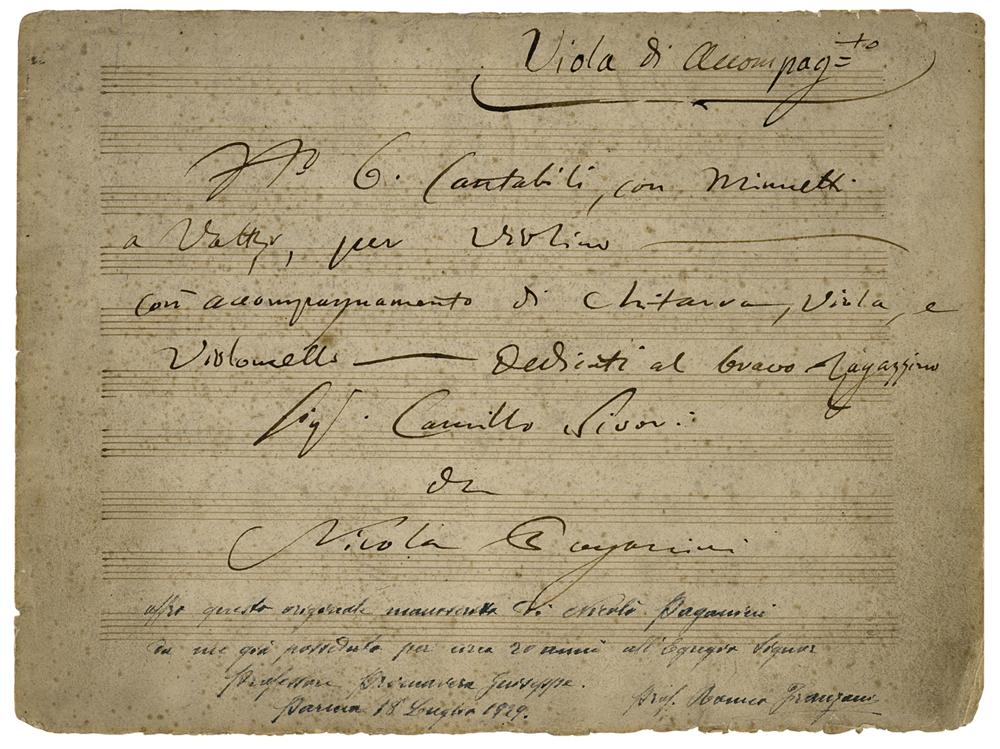 Viola di accompag=to
No 6. Cantabili, con Minuetti
a Valtzr, per Violino
con accompagnamento di Chitarra, Viola, e
Violoncello Dedicati al bravo Ragazzino
Sigr. Camillo Sivori
da
Nicolò Paganini
offro questo originale manoscritto di Nicolò Paganini
da me già posseduto per circa 20 anni all'Egregio Signor
Professore Primavera Giuseppe.
Parma 18 Luglio 1929.
Prof. Romeo Franzoni